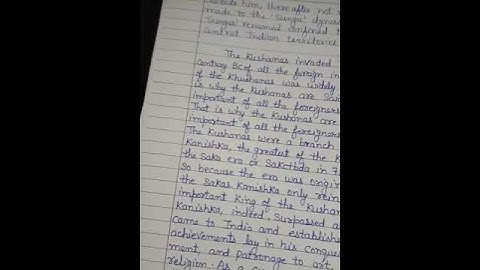 him, there after not
made to the 'Sunga' dynas
'Sunga' remained confined t
central Indian territories
The Kushanas invaded
century BC of all the foreign in
of the Khushanas was widely
is why the Kushanas are Said
important of all the foreigners
That is why the Kushanas are
important of all the foreigners
The Kushanas were a branch
Kanishka, the greatest of the K
the Saka era or Sakabda in 7
So because the era was origin
the Sakas Kanishka only rein
important King of the Kushan
Kanishka, indeed. Surpassed a
came to India and establishe
achievements lay in his conque
ment, and patronage to art,
religion. As a